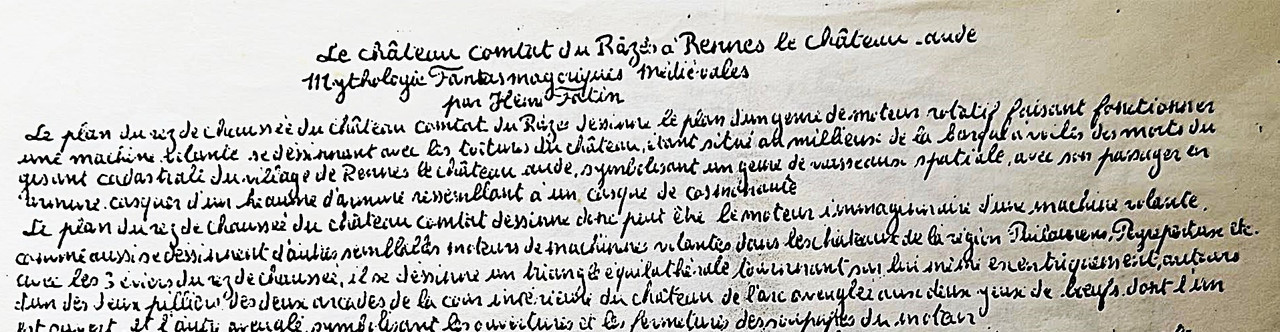 Le château comtat du Râzès à Rennes le château. aude
Mythologie Fantasmagoriques Médiévales
par Henri Fatin
Le plan du rez de chaussée du château comtat du Râzès dessinne le plan d'un genre de moteur rotatif faisant fonctionner
une machine volante se dessinnant avec les toitures du château, étant situé au millieux de la barque a voiles des morts du
gisant cadastrale du village de Rennes le château. aude, symbolisant un genre de vaisseaux spatiale, avec son passager en
armure casquer d'un hiaume d'armure ressemblant à un casque de cosmonaute
Le plan du rez de chaussée du château comtat dessinne donc peut être le moteur immaginaire d'une machine volante.
comme aussi se dessinnent d'autres semblables moteurs de machinnes volantes dans les châteaux de la région Puilaurens, Peyrepertuse etc.
avec les 3 éviers du rez de chaussée, il se dessinne un triangle équilathérale tournant sur lui même exentriquement, autours
d'un des deux pilliers des deux arcades de la cour intérieure du château de l'arc aveuglé aux deux yeux de bœufs dont l'un
est ouvert et l'autre aveuglé symbolisant les ouvertures et les fermetures des soupapes du moteur